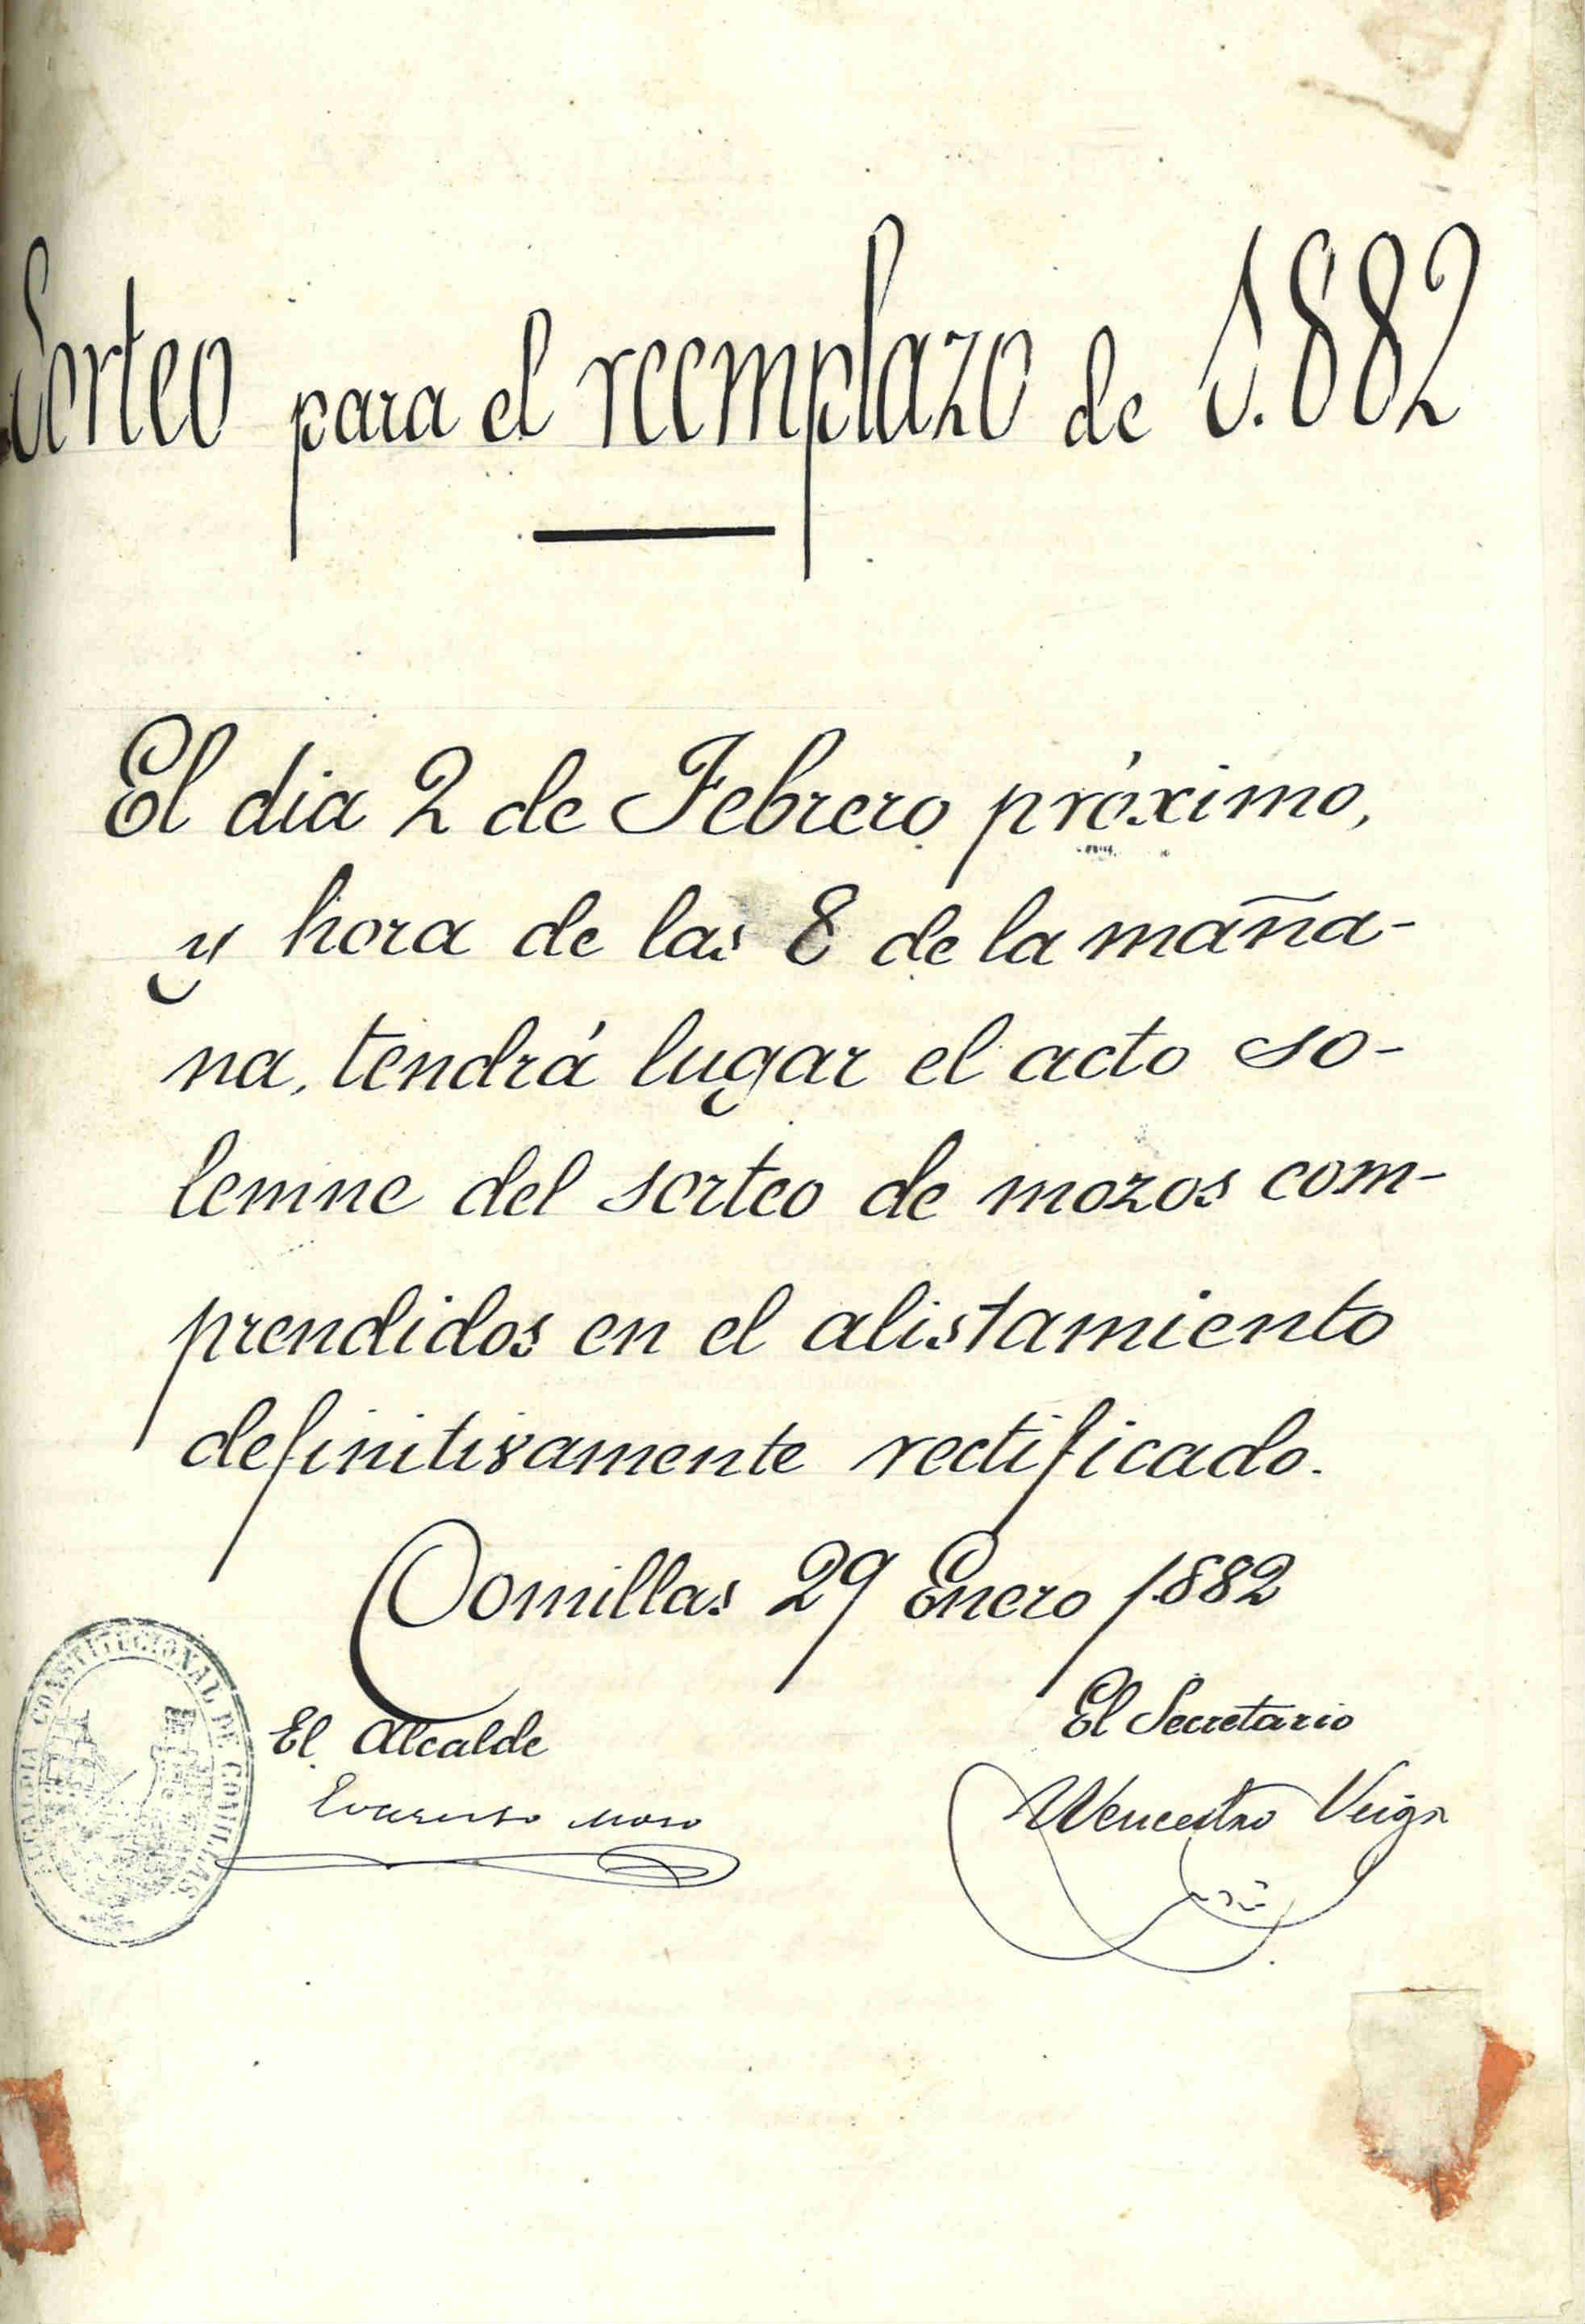 Sorteo para el reemplazo de 1.882
El dia 2 de Febrero próximo,
y hora de las 8 de la maña-
na, tendrá lugar el acto so-
lemne del sorteo de mozos com-
prendidos en el alistamiento
definitivamente rectificado.
Comillas 29 Enero 1882
ALCALDIA CONSTITUCIONAL DE COMILLAS
El Alcalde
El Secretario
Evaristo Moro
Wenceslao Veiga